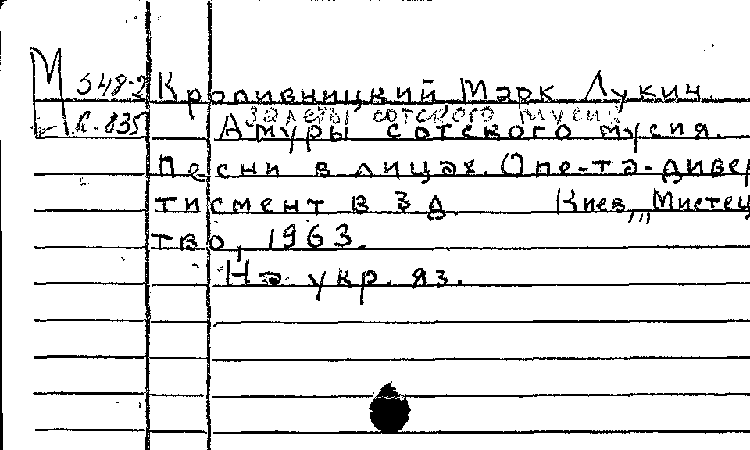 М 548-2 Кропивницкий Марк Лукич.
Залеты сотского Мусия
К-835 Амуры сотского мусия.
Песни в лицах. Опе-та-дивер
тисмент в 3 д. Киев, "Мистец
тво, 1963.
На укр. яз.